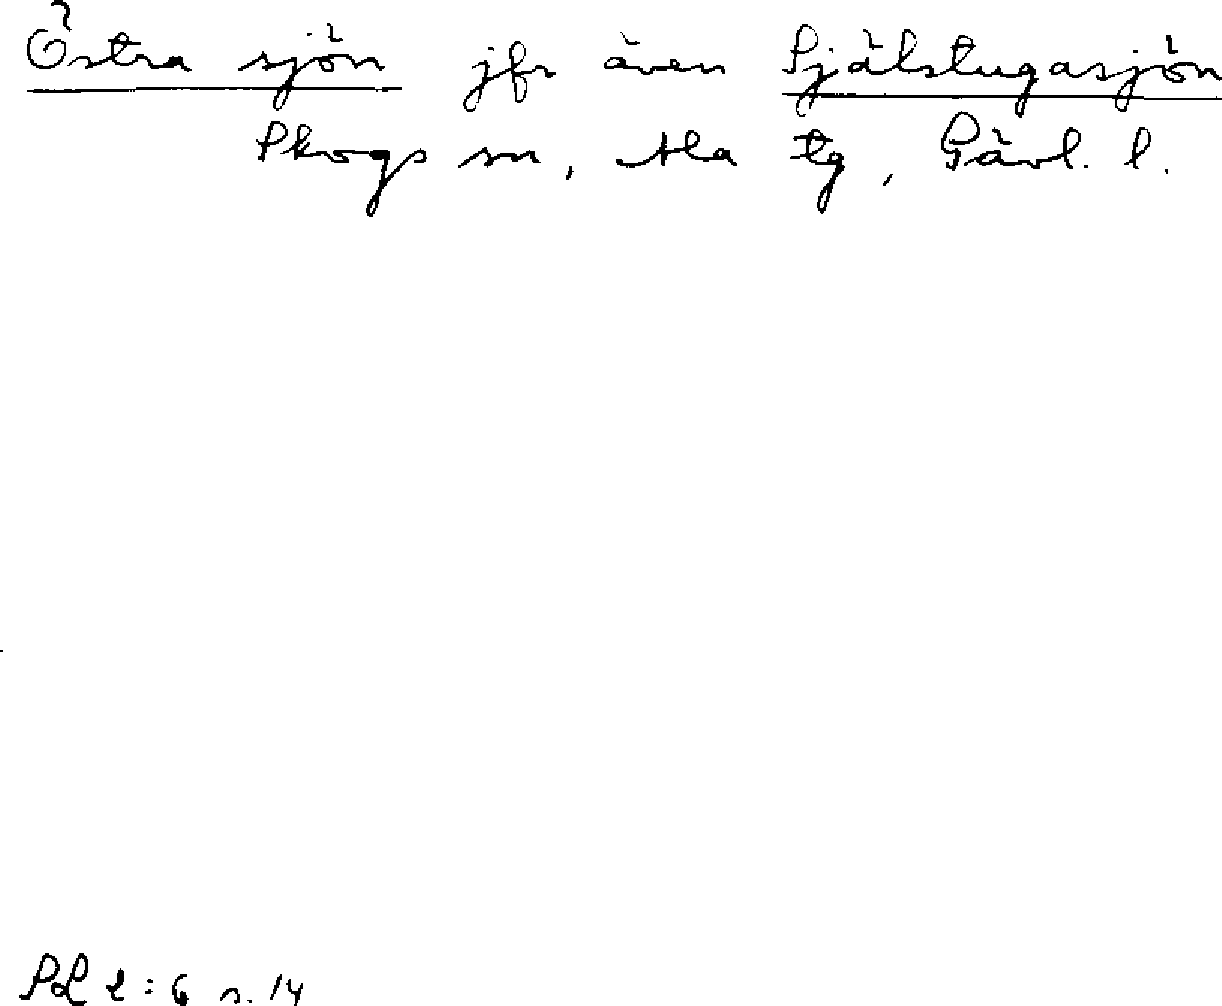 Östra sjön jfr även Själstugasjön
Skogs sn, Ala tg, Gävl. l.
SL 2:6 s. 14